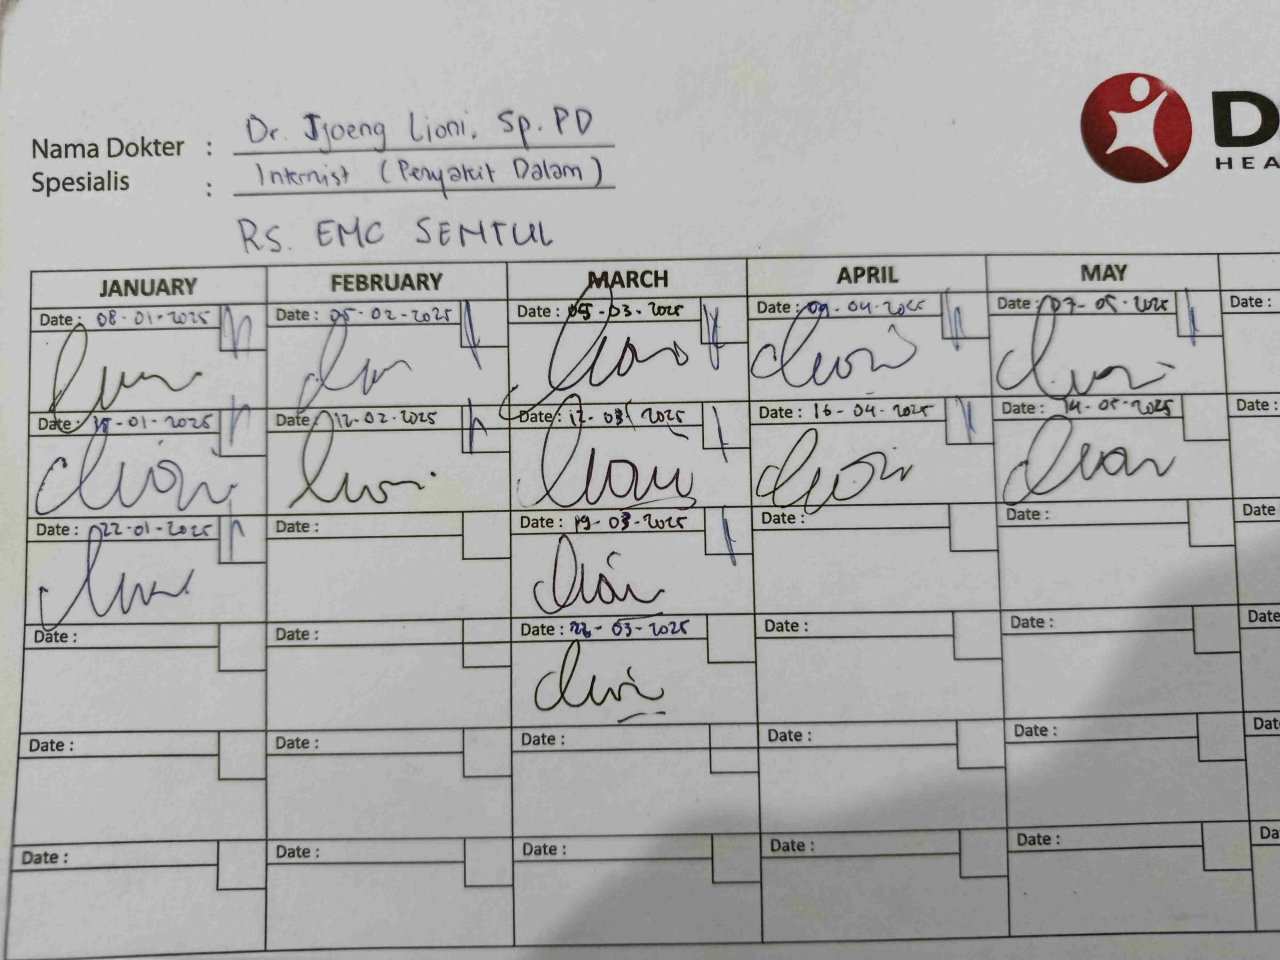 Nama Dokter : Dr. Tjoeng Lioni, Sp.PD
Spesialis : Internist (Penyakit Dalam)
RS. EMC SENTUL
D
HEA
JANUARY FEBRUARY MARCH APRIL MAY
Date : 08-01-2025 Date : 05-02-2025 Date : 05-03-2025 Date : 09-04-2025 Date : 07-05-2025 Date :
Date : 15-01-2025 Date : 12-02-2025 Date : 12-03-2025 Date : 16-04-2025 Date : 14-05-2025 Date :
Date : 22-01-2025 Date : Date : 19-03-2025 Date : Date : Date
Date : Date : Date : -03-2025 Date : Date : Date
Date : Date : Date : Date : Date : Dat
Date : Date : Date : Date : Date : Da